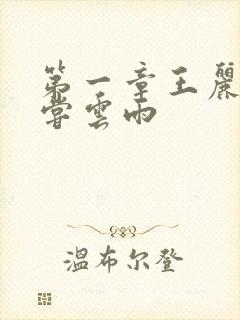 第一章王麗
嘗雲雨
溫布尔登